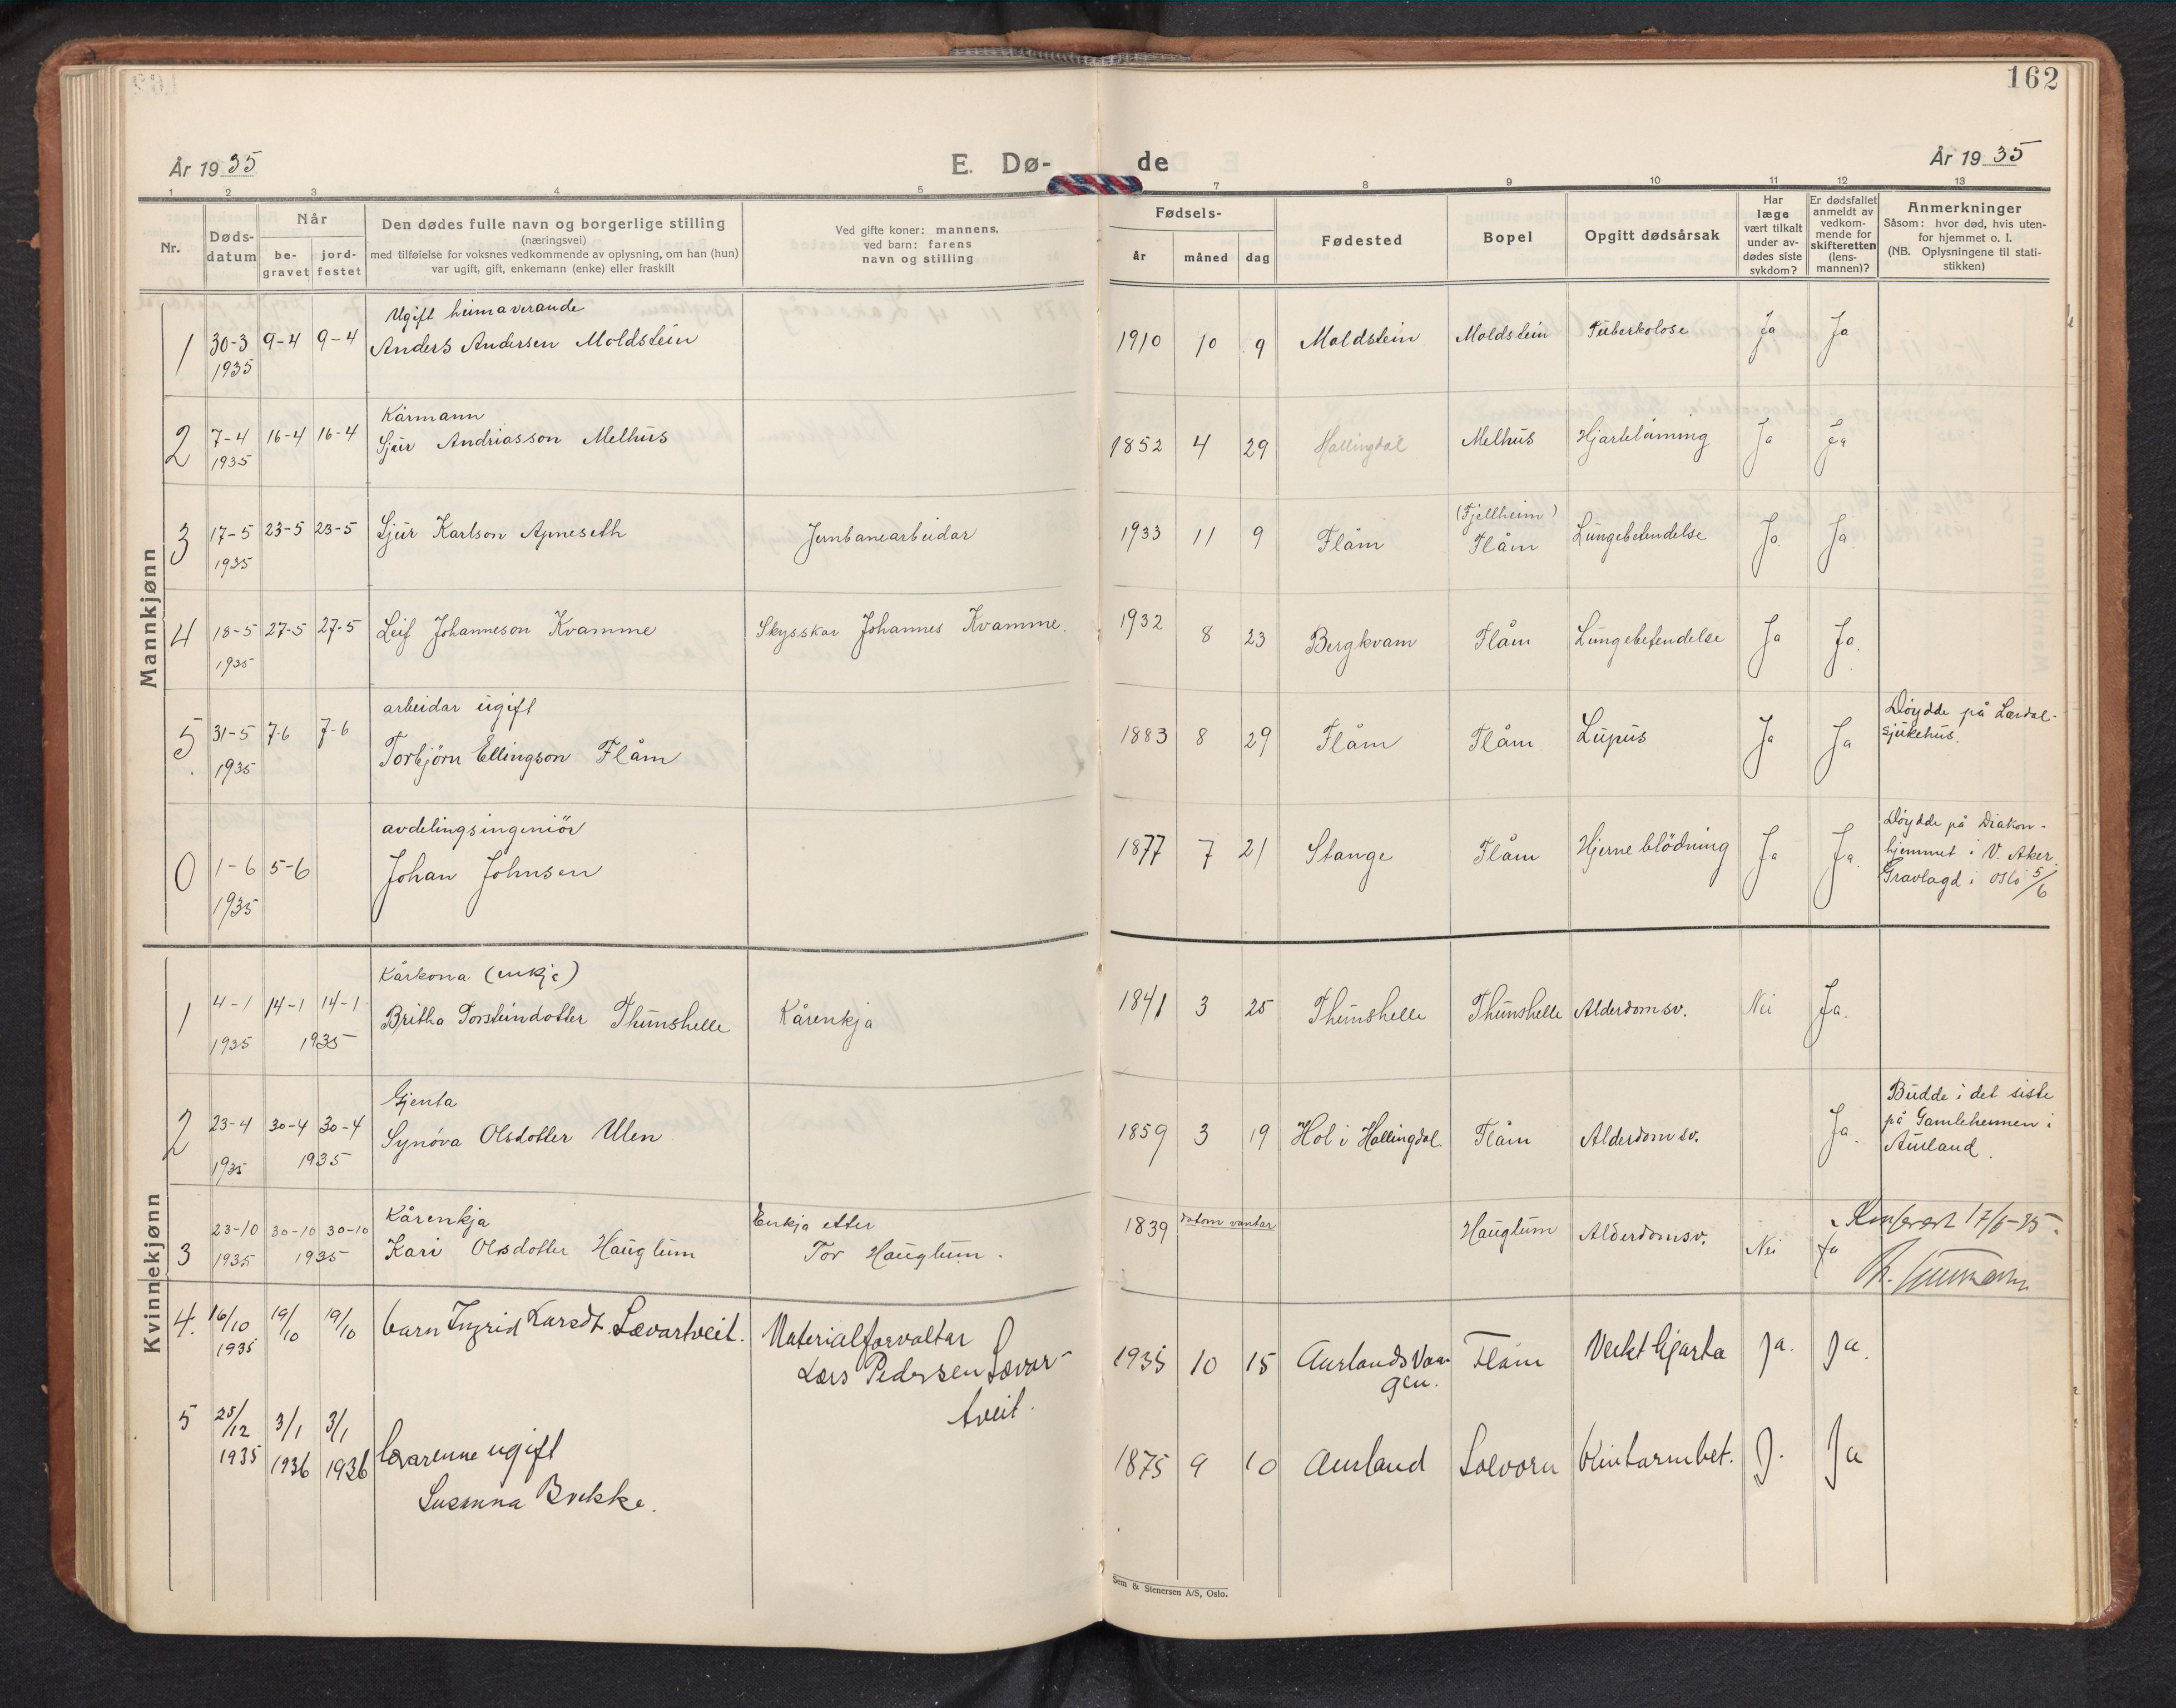 162
År 1935
E. Dø-
de
År 1935
1 2 3 4 5 7 8 9 10 11 12 13
Nr.
Døds-
datum
Når
be-
gravet
jord-
festet
Den dødes fulle navn og borgerlige stilling
(næringsvei)
med tilføielse for voksnes vedkommende av oplysning, om han (hun)
var ugift, gift, enkemann (enke) eller fraskilt
Ved gifte koner: mannens,
ved barn: farens
navn og stilling
Fødsels-
år måned dag
Fødested
Bopel
Opgitt dødsårsak
Har
læge
vært tilkalt
under av-
dødes siste
sykdom?
Er dødsfallet
anmeldt av
vedkom-
mende for
skifteretten
(lens-
mannen)?
Anmerkninger
Såsom: hvor død, hvis uten-
for hjemmet o. l.
(NB. Oplysningene til stati-
stikken)
Mannkjønn
Ugift heimaverande
1 30-3 9-4 9-4 Anders Andersen Moldstein 1910 10 9 Moldstein Moldstein Tuberkolose Ja Ja
1935
Kårmann
2 7-4 16-4 16-4 Sjur Andriasson Melhus 1852 4 29 Hallingdal Melhus Hjartelaming Ja Ja
1935
(Fjellheim)
3 17-5 23-5 23-5 Sjur Karlson Apneseth Jernbanearbeidar 1933 11 9 Flåm Flåm Lungebetendelse Ja Ja
1935
4 18-5 27-5 27-5 Leif Johanneson Kvamme Skysskar Johannes Kvamme. 1932 8 23 Bergkvam Flåm Lungebetendelse Ja Ja.
1935
arbeidar ugift
5 31-5 7-6 7-6 Torbjörn Ellingson Flåm 1883 8 29 Flåm Flåm Lupus Ja Ja Döydde på Lærdal-
sjukehus.
1935
avdelingsingeniör
0 1-6 5-6 Johan Johnsen 1877 7 21 Stange Flåm Hjerneblödning Ja Ja. Döydde på Diakon-
hjemmet i V. Aker.
Gravlagd i Oslo 5/6
1935
Kvinnekjønn
Kårkona (enkja)
1 4-1 14-1 14-1 Britha Torsteindotter Thunshelle Kårenkja 1841 3 25 Thunshelle Thunshelle Alderdomsv. Nei Ja.
1935 1935
Gjenta
2 23-4 30-4 30-4 Synöva Olsdotter Ulen 1859 3 19 Hol i Hallingdal. Flåm Alderdomsv. Ja. Budde i det siste
på Gamleheimen i
Aurland.
1935 1935
Kårenkja
3 23-10 30-10 30-10 Kari Olsdotter Hauglum Enkja etter
Tor Hauglum. 1839 datum vantar Hauglum Alderdomsv. Nei Ja
1935 1935
17/6-35.
4. 16/10 19/10 19/10 barn Ingrid Larsdt. Lævartveit. Materialforvaltar
Lars Pedersen Lævar-
tveit. 1935 10 15 Aurlandsvan-
gen. Flåm Veikt hjarta Ja. Ja.
1935
5 25/12 3/1 3/1
1935 1936 1936 ugift
Susanna Brekke. 1875 9 10 Aurland Solvorn J. Ja
Sem & Stenersen A/S, Oslo.